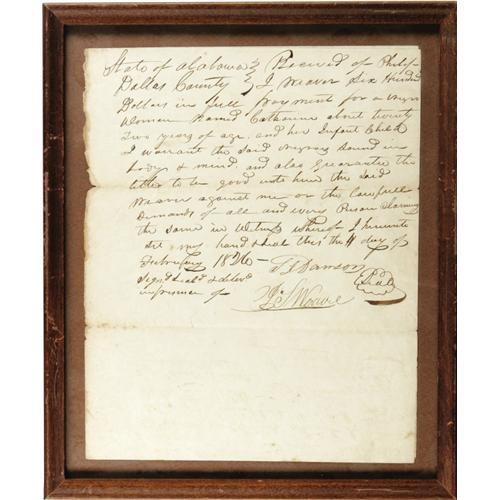 State of Alabama } Received of Philip
Dallas County } J Weaver Six Hundred
Dollars in full payment for a Negro
Woman Named Catharine about twenty
two years of age and her Infant Child
I warrant the said Negroes Sound in
body & mind. and also Guarantee the
title to be good unto him the said
Weaver against me or the Lawfull
Demands of all and every Person Claiming
the same in Witness whereof I hereunto
Set my hand & Seal this the 4 day of
February 1826 Dawson
Signd Seald & delivd Seal
in presence of